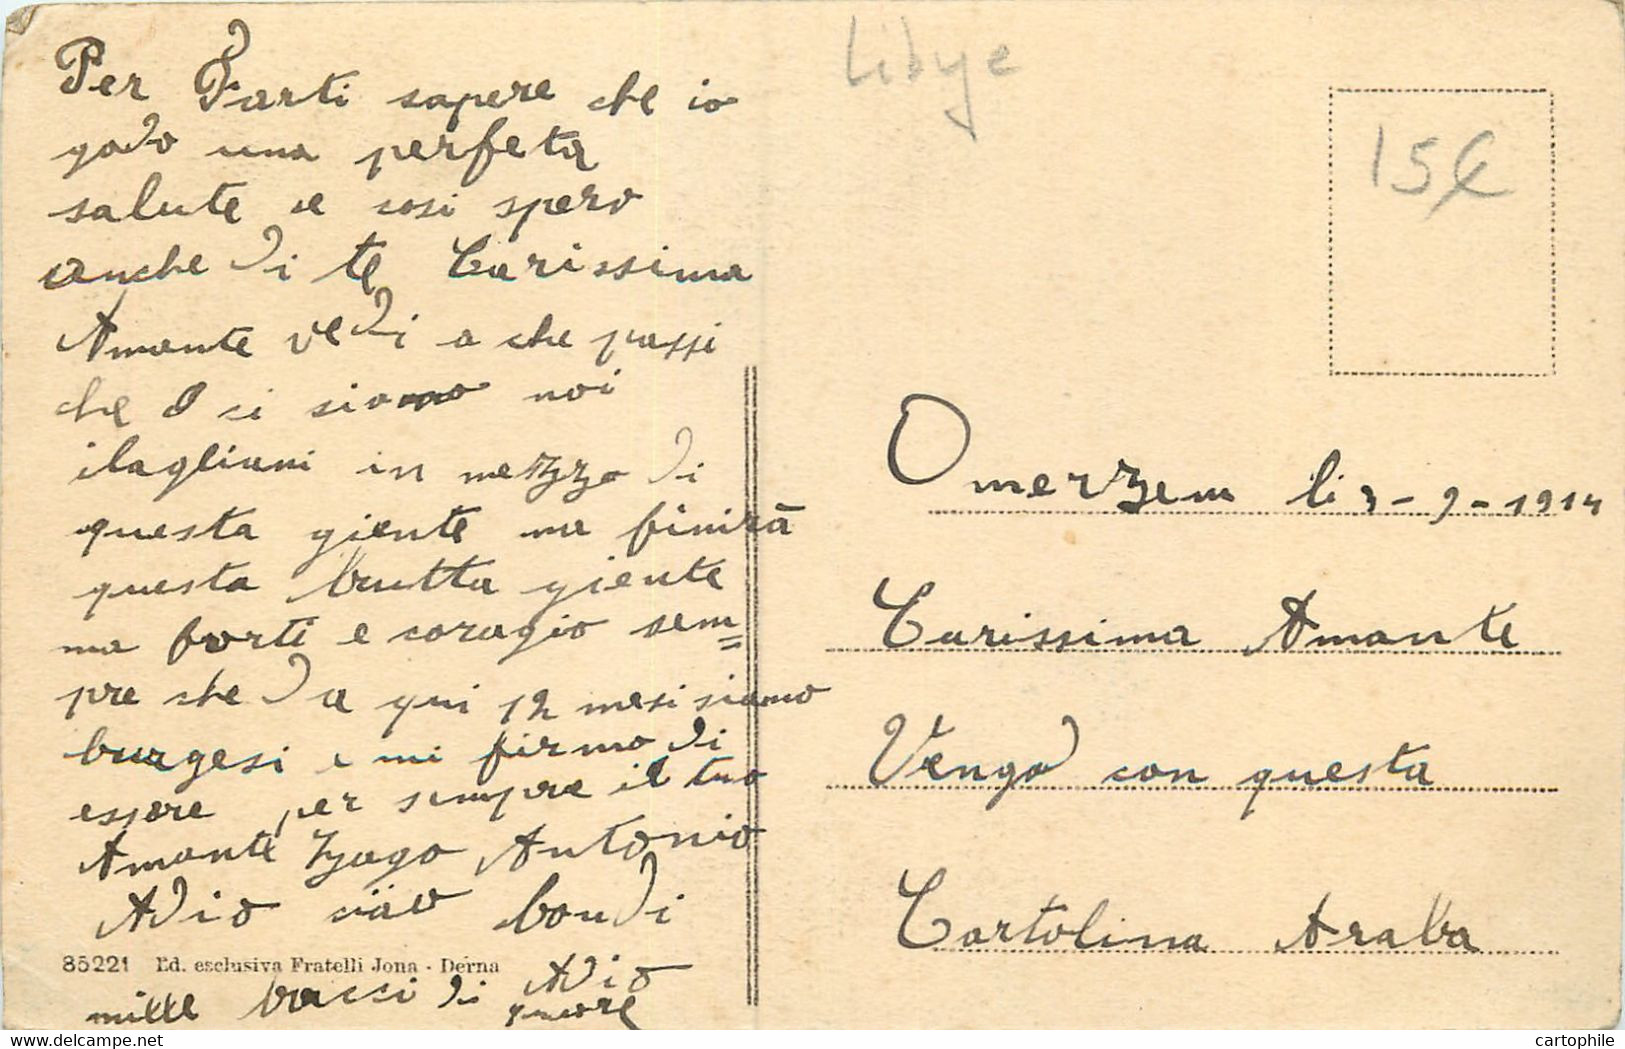 Libye
15€
Omerzem li 3-9-1914
Carissima Amante
Vengo con questa
Cartolina Araba
Per Farti sapere che io
godo una perfeta
salute e cosi spero
anche di te Carissima
Amante vedi a che passi
che ci siamo noi
itagliani in mezzo di
questa giente ma finirà
questa brutta giente
ma forti e coragio sem=
pre che da qui 12 mesi siamo
burgesi e mi firmo di
essere per sempre il tuo
Amante Zago Antonio
Adio ciao bondi
Adio
mille bacci di amore
85221 Ed. esclusiva Fratelli Jona - Derna
delcampe.net
cartophile